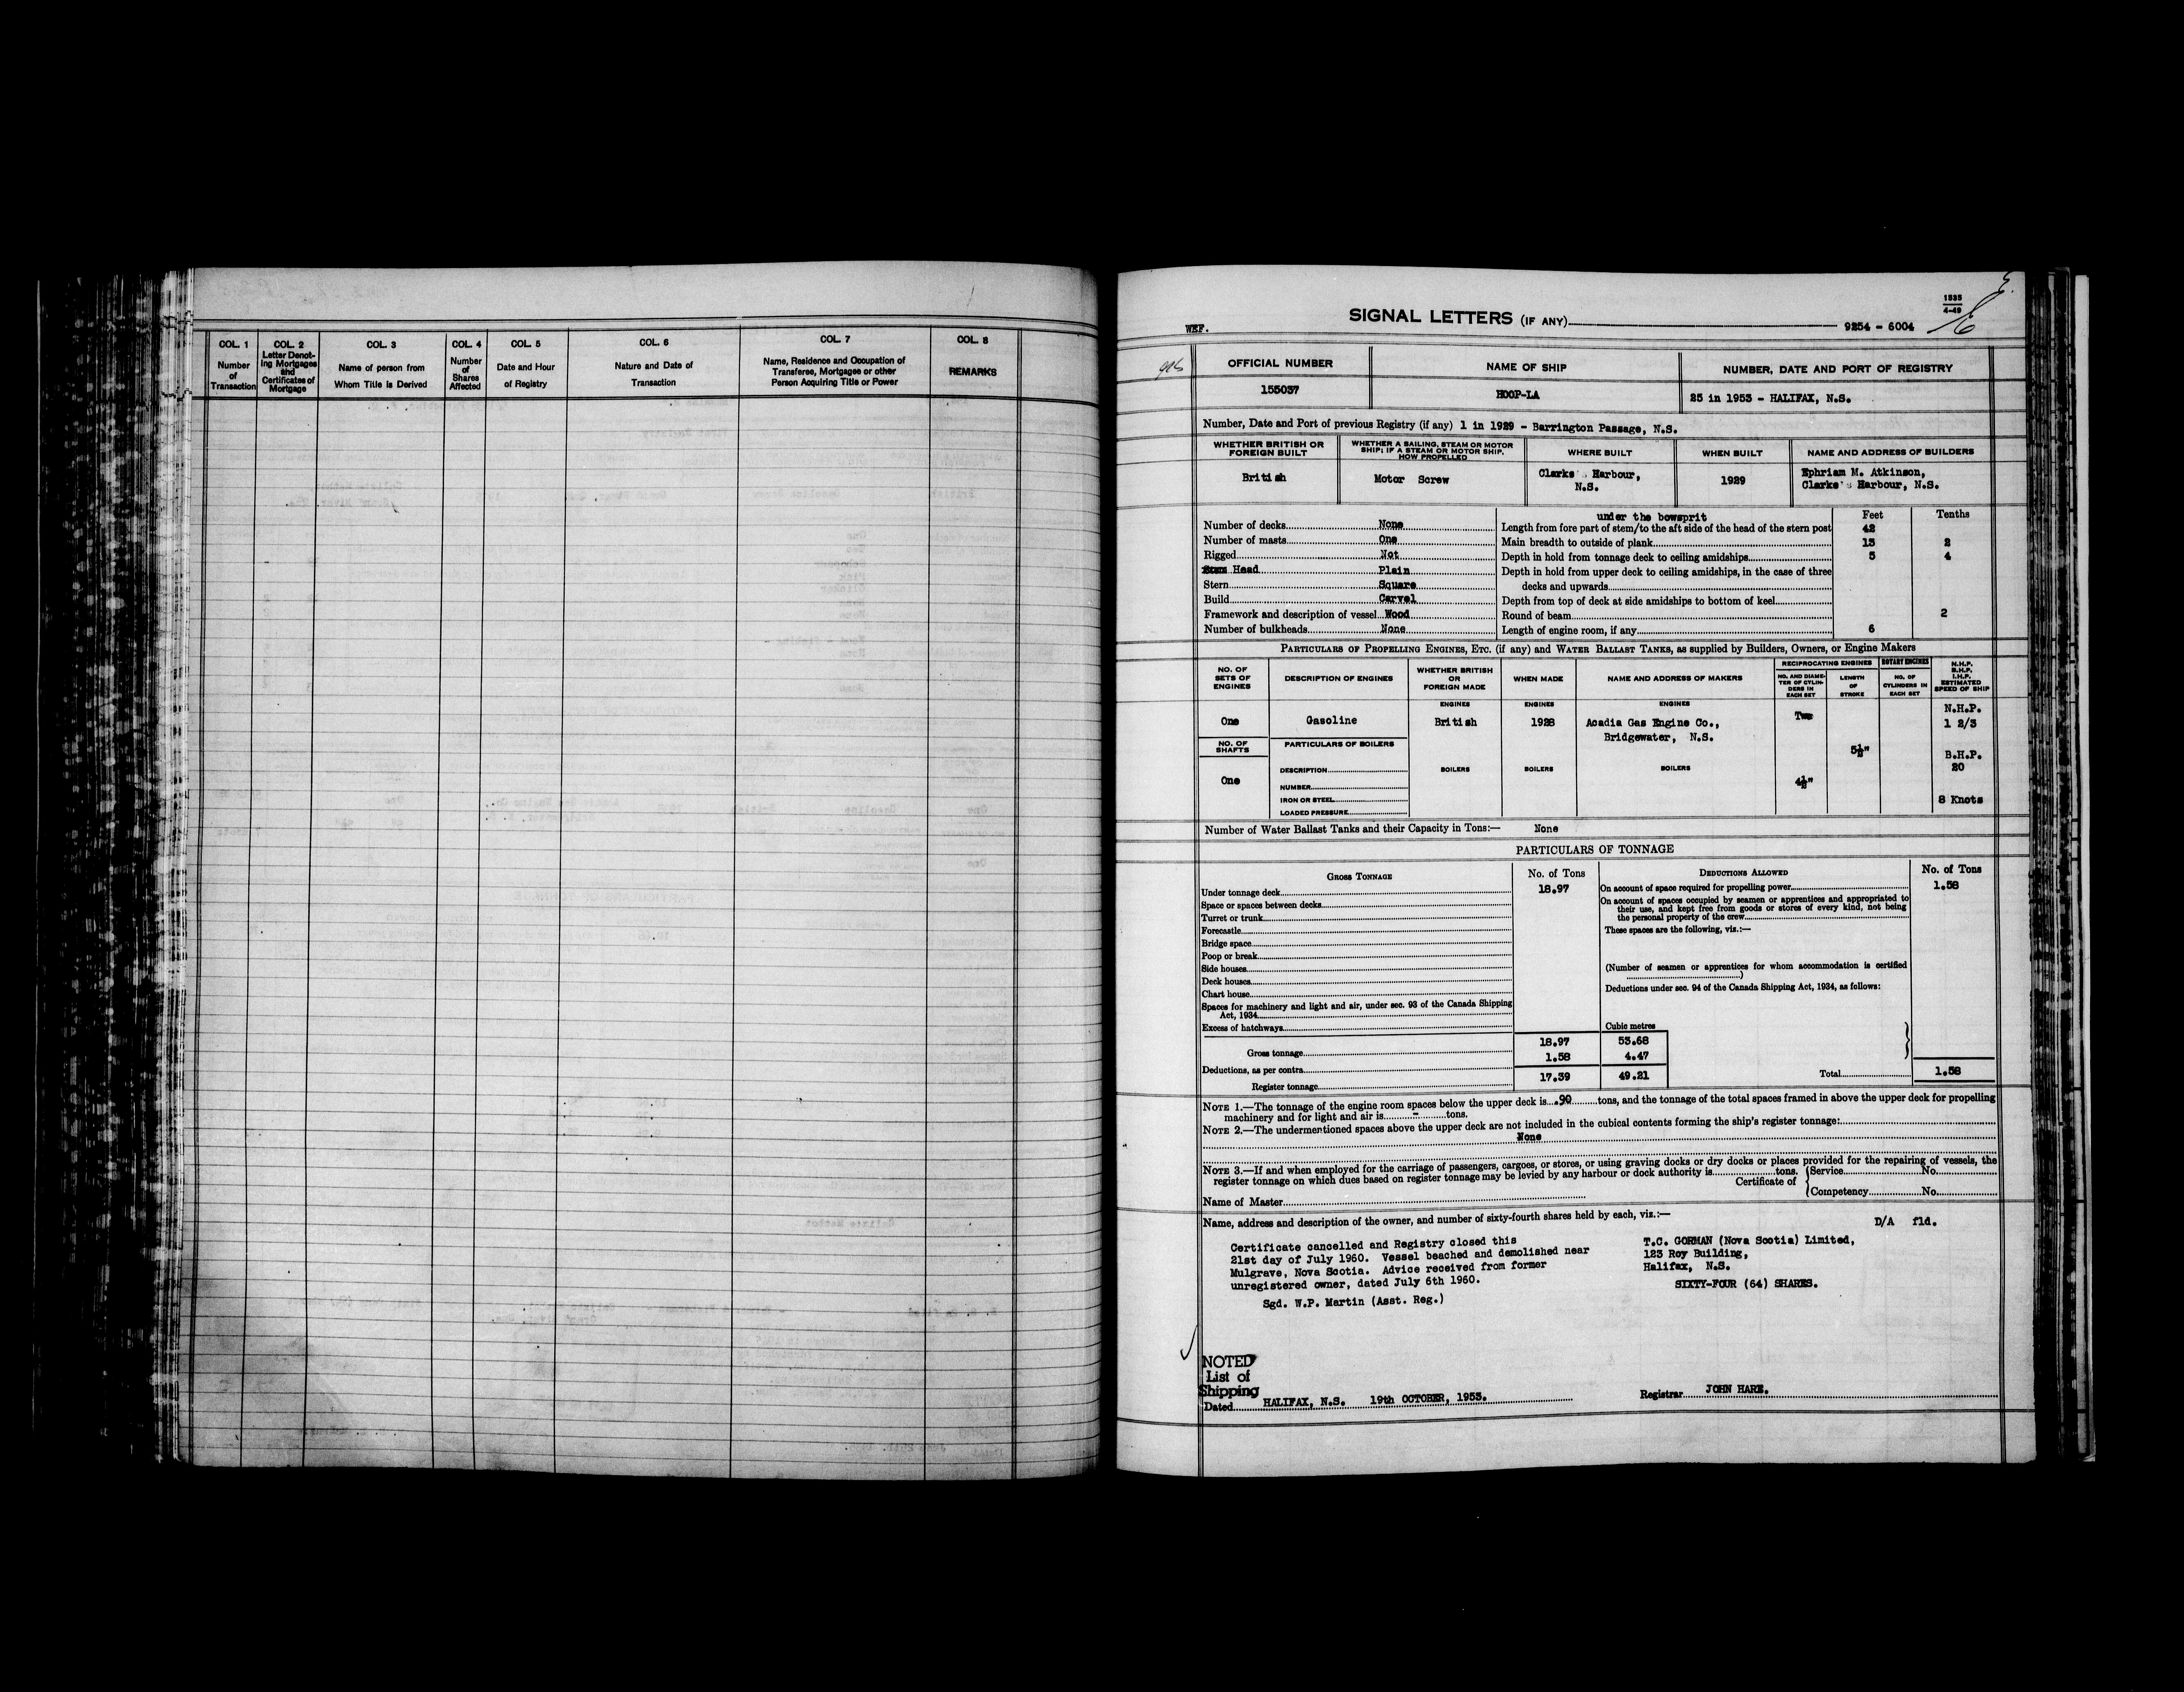 COL. 1 COL. 2 COL. 3 COL. 4 COL. 5 COL. 6 COL. 7 COL. 8
Number of Transaction
Letter Denoting Mortgages and Certificates of Mortgage
Name of person from Whom Title is Derived
Number of Shares Affected
Date and Hour of Registry
Nature and Date of Transaction
Name, Residence and Occupation of Transferee, Mortgagee or other Person Acquiring Title or Power
REMARKS
1535
4-49
WEF.
SIGNAL LETTERS (IF ANY) 9254 - 6004
OFFICIAL NUMBER NAME OF SHIP NUMBER, DATE AND PORT OF REGISTRY
155037 HOOP-LA 25 in 1953 - HALIFAX, N.S.
Number, Date and Port of previous Registry (if any) 1 in 1929 - Barrington Passage, N.S.
WHETHER BRITISH OR FOREIGN BUILT
WHETHER A SAILING, STEAM OR MOTOR SHIP; IF A STEAM OR MOTOR SHIP, HOW PROPELLED
WHERE BUILT
WHEN BUILT
NAME AND ADDRESS OF BUILDERS
British Motor Screw Clarks Harbour, N.S. 1929 Ephriam M. Atkinson,
Clarke's Harbour, N.S.
Number of decks None
Number of masts One
Rigged Not
Stem Head Plain
Stern Square
Build Carvel
Framework and description of vessel Wood
Number of bulkheads None
Feet Tenths
under the bowsprit
Length from fore part of stem/to the aft side of the head of the stern post 42
Main breadth to outside of plank 13 2
Depth in hold from tonnage deck to ceiling amidships 5 4
Depth in hold from upper deck to ceiling amidships, in the case of three
decks and upwards
Depth from top of deck at side amidships to bottom of keel
Round of beam 2
Length of engine room, if any 6
PARTICULARS OF PROPELLING ENGINES, ETC. (if any) and WATER BALLAST TANKS, as supplied by Builders, Owners, or Engine Makers
NO. OF SETS OF ENGINES
DESCRIPTION OF ENGINES
WHETHER BRITISH OR FOREIGN MADE
WHEN MADE
NAME AND ADDRESS OF MAKERS
RECIPROCATING ENGINES
NO. AND DIAMETER OF CYLINDERS IN EACH SET
LENGTH OF STROKE
ROTARY ENGINES
NO. OF CYLINDERS IN EACH SET
N.H.P.
B.H.P.
I.H.P.
ESTIMATED SPEED OF SHIP
ENGINES ENGINES ENGINES
One Gasoline British 1928 Acadia Gas Engine Co.,
Bridgewater, N.S.
Two
5½"
4½"
N.H.P.
1 2/3
B.H.P.
20
8 Knots
NO. OF SHAFTS
One
PARTICULARS OF BOILERS
DESCRIPTION
NUMBER
IRON OR STEEL
LOADED PRESSURE
BOILERS BOILERS BOILERS
Number of Water Ballast Tanks and their Capacity in Tons:— None
PARTICULARS OF TONNAGE
GROSS TONNAGE No. of Tons DEDUCTIONS ALLOWED No. of Tons
Under tonnage deck 18.97
Space or spaces between decks
Turret or trunk
Forecastle
Bridge space
Poop or break
Side houses
Deck houses
Chart house
Spaces for machinery and light and air, under sec. 93 of the Canada Shipping
Act, 1934
Excess of hatchways
Cubic metres
Gross tonnage 18.97 53.68
Deductions, as per contra 1.58 4.47
Register tonnage 17.39 49.21
On account of space required for propelling power 1.58
On account of spaces occupied by seamen or apprentices and appropriated to
their use, and kept free from goods or stores of every kind, not being
the personal property of the crew
These spaces are the following, viz.:—
(Number of seamen or apprentices for whom accommodation is certified
)
Deductions under sec. 94 of the Canada Shipping Act, 1934, as follows:
Total 1.58
NOTE 1.—The tonnage of the engine room spaces below the upper deck is .90 tons, and the tonnage of the total spaces framed in above the upper deck for propelling
machinery and for light and air is - tons.
NOTE 2.—The undermentioned spaces above the upper deck are not included in the cubical contents forming the ship's register tonnage:
None
NOTE 3.—If and when employed for the carriage of passengers, cargoes, or stores, or using graving docks or dry docks or places provided for the repairing of vessels, the
register tonnage on which dues based on register tonnage may be levied by any harbour or dock authority is tons.
Certificate of
Service No.
Competency No.
Name of Master
Name, address and description of the owner, and number of sixty-fourth shares held by each, viz.:—
D/A fld.
Certificate cancelled and Registry closed this
21st day of July 1960. Vessel beached and demolished near
Mulgrave, Nova Scotia. Advice received from former
unregistered owner, dated July 6th 1960.
Sgd. W.P. Martin (Asst. Reg.)
T.C. GORMAN (Nova Scotia) Limited,
123 Roy Building,
Halifax, N.S.
SIXTY-FOUR (64) SHARES.
NOTED
List of
Shipping
Dated HALIFAX, N.S. 19th OCTOBER, 1953.
Registrar JOHN HARE.